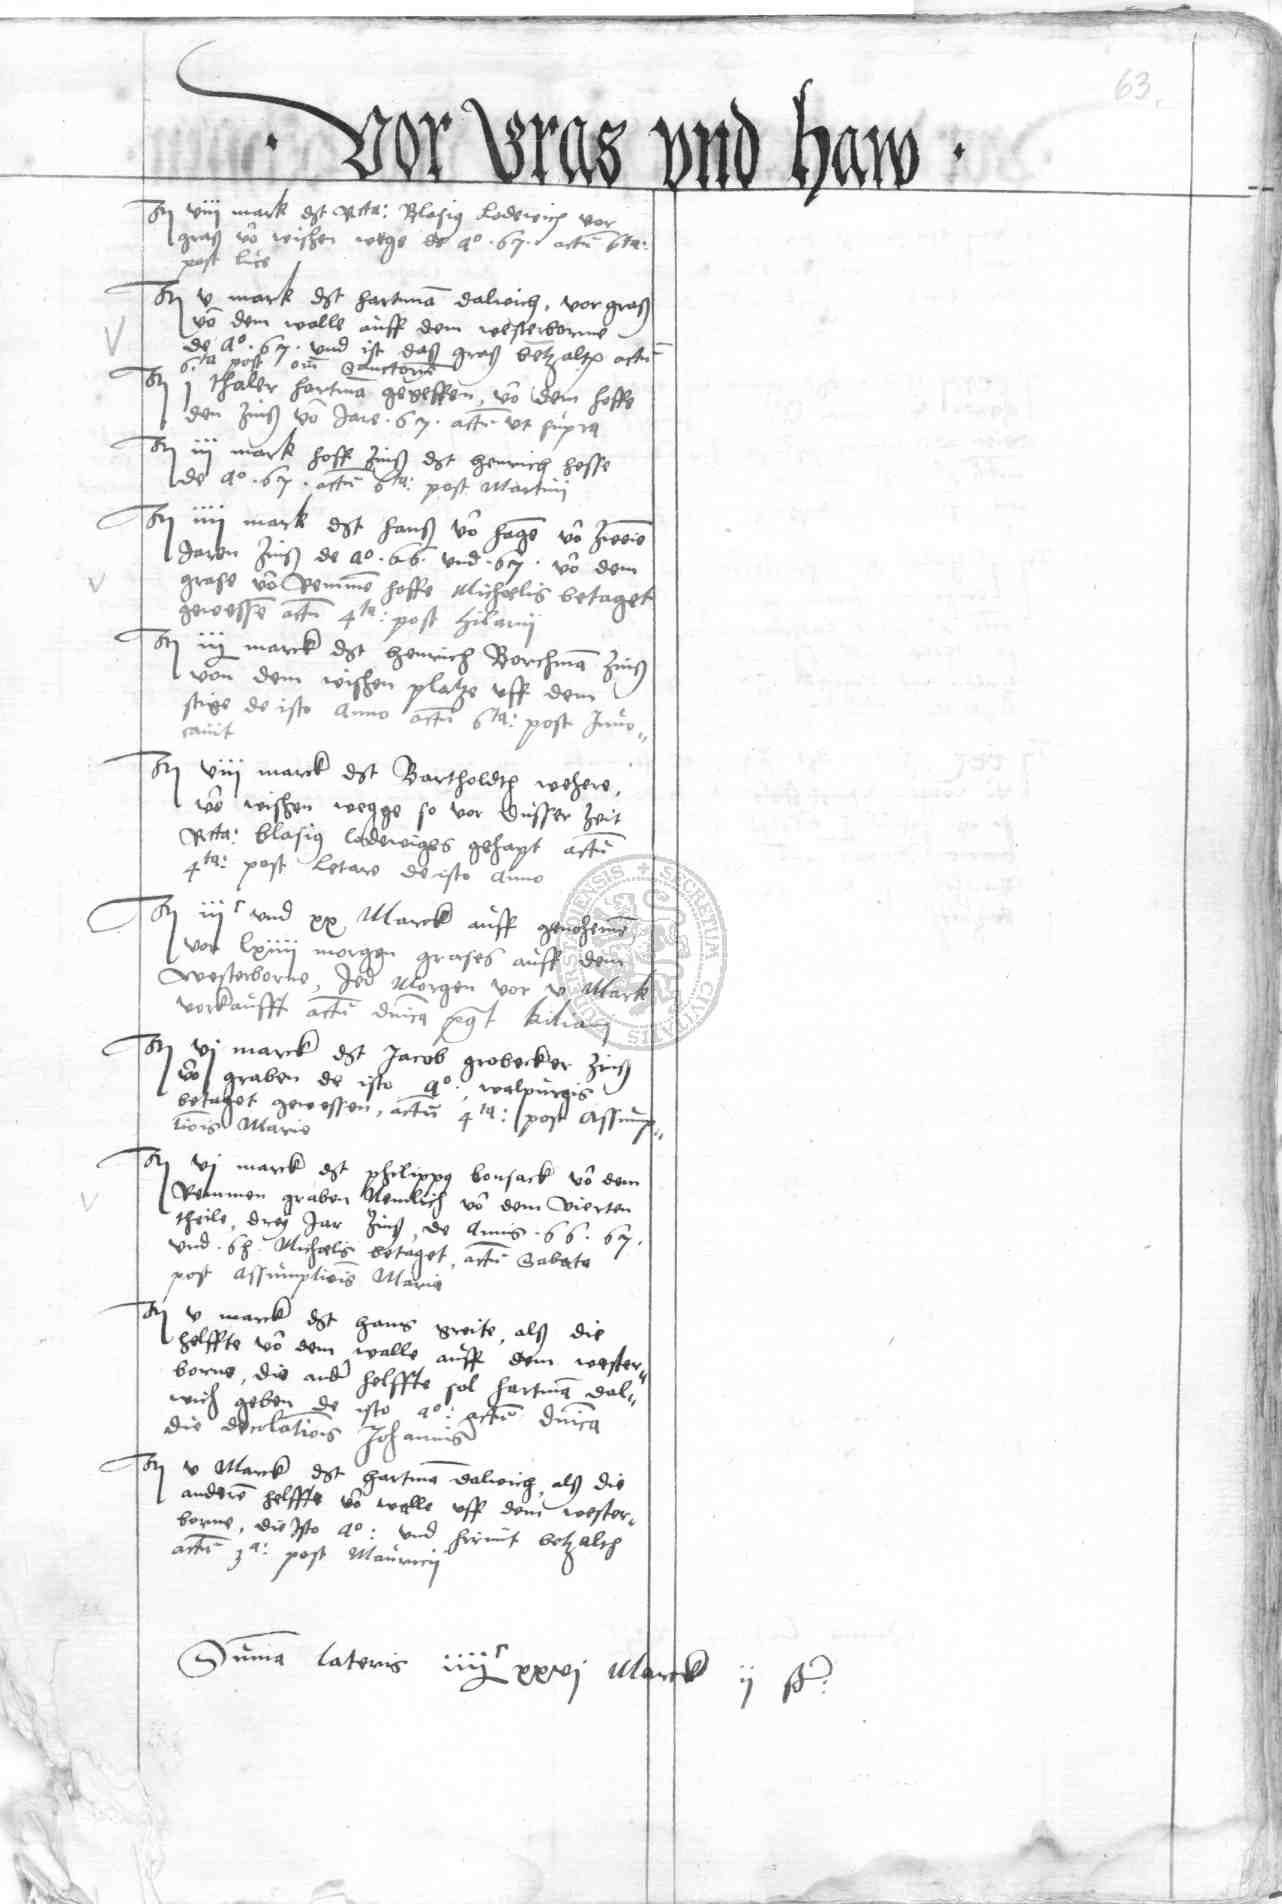 63.
· Vor Gras vnd haw ·
It viii mark dt Rtta: Blasiq Lodewich vor
graß vō wischen wege de ao · 67 · actū 6ta:
post luce
It v mark dt hartmā dalwich, vor graß
vō dem walle auff dem westerborne
de Ao · 67 · vnd ist daß graß betzalt actū
6ta post om Sanctorū
It j thaler hartmā geben, vō dem hoffe
den Zinß vō Jare · 67 · actū vt supra
It iii mark hoff Zinß dt henrich hesse
de Ao · 67 · actū 6ta: post Martinj
It iiii mark dt hanß vō hagē vō zweie
Jaren Zinß de ao · 66 · vnd · 67 · vō dem
grase vō Remmē hoffe Michaelis betaget
gewessē actū 4ta: post hilarij
It iij marck dt Henrich Borchmā Zinß
von dem wischen platze vff dem
stige de isto Anno actū 6ta: post Juuo=
cauit
It viii marck dt Bartholdt wehere,
vō wischen wegge so vor dusser Zeit
Rtta: blasiq lodewiges gehapt actū
4ta: post Letare de isto Anno
It iiic vnd xx Marck auff genohemē
vor lxiiii morgen grases auff dem
westerborne, Jed Morgen vor v Mark
vorkaufft actū dnīca post kilianj
It vj marck dt Jacob grobecker Zinß
vō graben de isto ao:, walpurgis
betaget gewessen, actū 4ta: post Assump=
tiois Marie
It vj marck dt philippq bonsack vō dem
Remmen graben Nemlich vō dem vierten
theile, drej Jar Zinß, de Annis · 66 · 67 ·
vnd · 68 · Michaelis betaget, actū Sabato
post Assumptiois Marie
It v marck dt hans breite, alß die
helffte vō dem walle auff dem wester=
borne, die ander helffte sol hartmā dal=
wich geben de isto ao: actū dnīca
die decolatiois Johannis
It v Marck dt hartmā dalwich, alß die
anderē helffte vō walle vff dem wester=
borne, die Isto Ao: vnd hirmit betzalth
actū 3a: post Mauricij
Suma lateris iiiic xxvj Marck ij ß:
SECRETUM CIVITATIS DUDERSTADENSIS